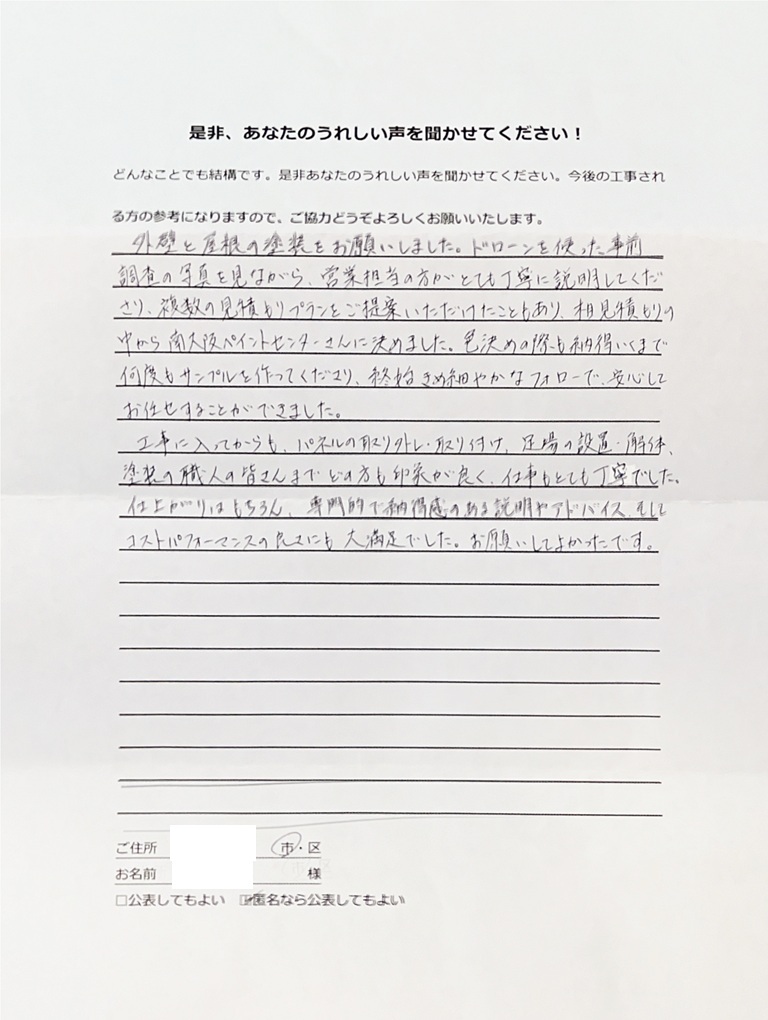 是非、あなたのうれしい声を聞かせてください！
どんなことでも結構です。是非あなたのうれしい声を聞かせてください。今後の工事され
る方の参考になりますので、ご協力どうぞよろしくお願いいたします。
外壁と屋根の塗装をお願いしました。ドローンを使った事前
調査の写真を見ながら、営業担当の方がとても丁寧に説明してくだ
さり、複数の見積もりプランをご提案いただけたこともあり、相見積もりの
中から南大阪ペイントセンターさんに決めました。色決めの際も納得いくまで
何度もサンプルを作ってくださり、終始きめ細やかなフォローで、安心して
お任せすることができました。
工事に入ってからも、パネルの取り外し・取り付け、足場の設置・解体、
塗装の職人の皆さんまでどの方も印象が良く、仕事もとても丁寧でした。
仕上がりはもちろん、専門的で納得感のある説明やアドバイス、そして
コストパフォーマンスの良さにも大満足でした。お願いしてよかったです。
ご住所 市・区
お名前 様
□公表してもよい ☑匿名なら公表してもよい